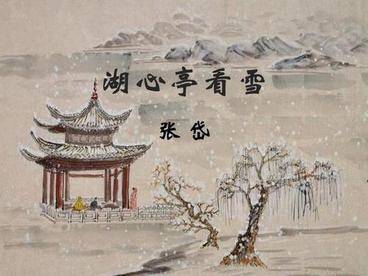 湖心亭看雪
张岱